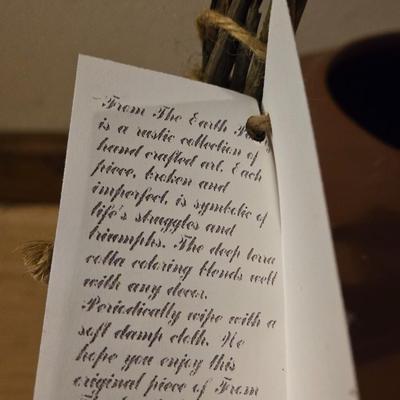 From The Earth
is a rustic collection of
hand crafted art. Each
piece, broken and
imperfect, is symbolic of
life's struggles and
triumphs. The deep terra
cotta coloring blends well
with any decor.
Periodically wipe with a
soft damp cloth. We
hope you enjoy this
original piece of From